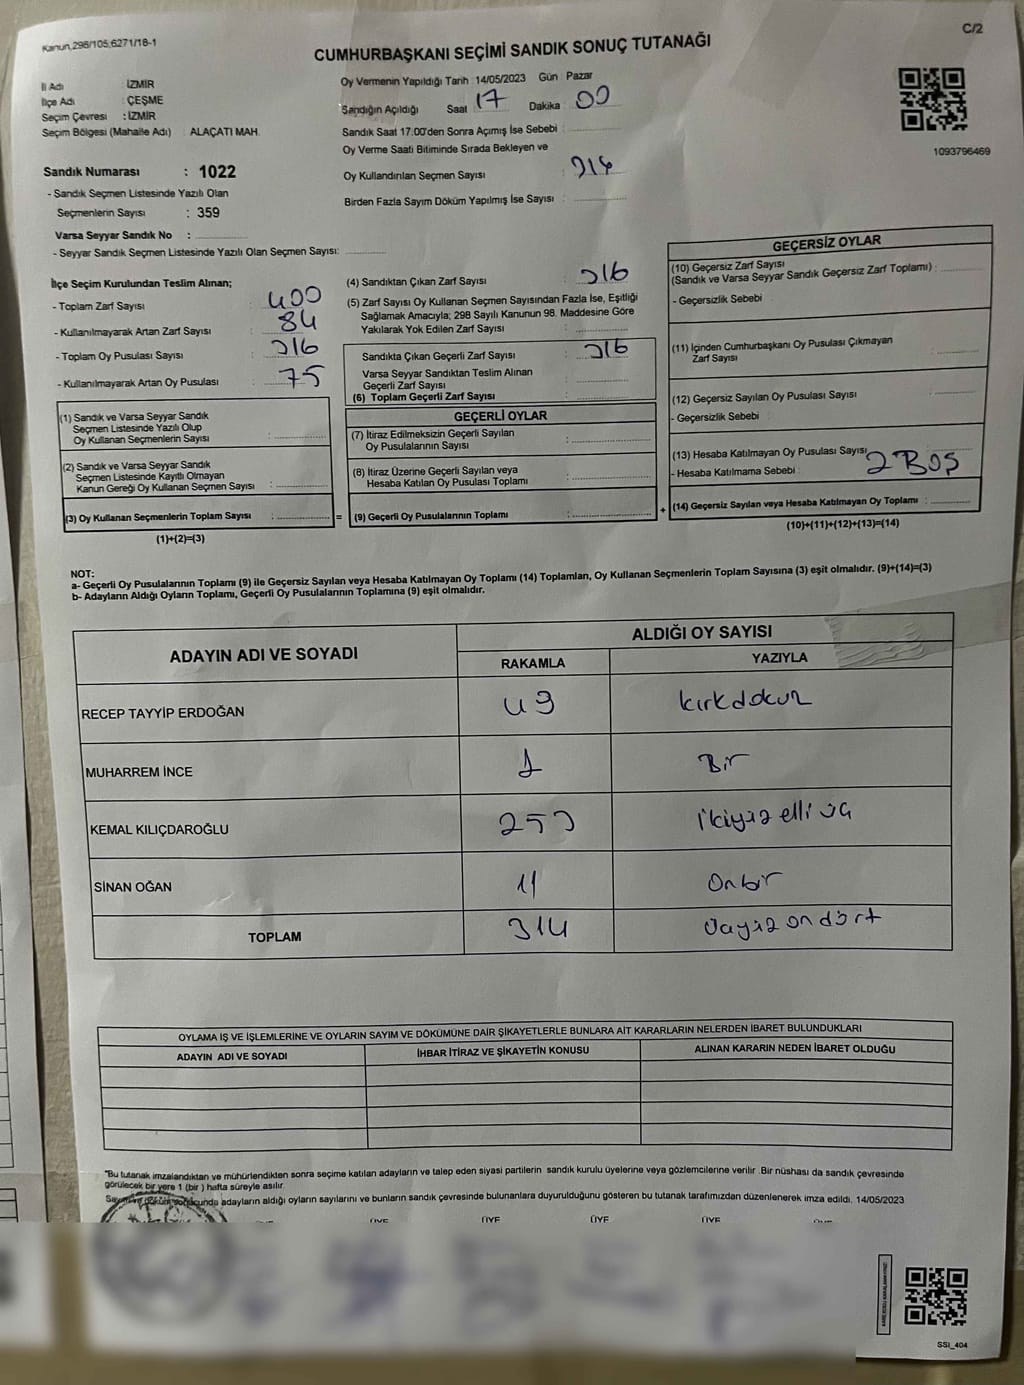 Kanun,298/105;6271/18-1
C/2
CUMHURBAŞKANI SEÇİMİ SANDIK SONUÇ TUTANAĞI
İl Adı : İZMİR
İlçe Adı : ÇEŞME
Seçim Çevresi : İZMİR
Seçim Bölgesi (Mahalle Adı) : ALAÇATI MAH.
Oy Vermenin Yapıldığı Tarih : 14/05/2023 Gün Pazar
Sandığın Açıldığı Saat 17 Dakika 00
Sandık Saat 17.00'den Sonra Açımış İse Sebebi :
Oy Verme Saati Bitiminde Sırada Bekleyen ve
Oy Kullandırılan Seçmen Sayısı :
Birden Fazla Sayım Döküm Yapılmış İse Sayısı :
1093796469
Sandık Numarası : 1022
- Sandık Seçmen Listesinde Yazılı Olan
Seçmenlerin Sayısı : 359
Varsa Seyyar Sandık No :
- Seyyar Sandık Seçmen Listesinde Yazılı Olan Seçmen Sayısı:
İlçe Seçim Kurulundan Teslim Alınan;
- Toplam Zarf Sayısı : 400
- Kullanılmayarak Artan Zarf Sayısı : 84
- Toplam Oy Pusulası Sayısı : 316
- Kullanılmayarak Artan Oy Pusulası : 75
(1) Sandık ve Varsa Seyyar Sandık
Seçmen Listesinde Yazılı Olup
Oy Kullanan Seçmenlerin Sayısı :
(2) Sandık ve Varsa Seyyar Sandık
Seçmen Listesinde Kayıtlı Olmayan
Kanun Gereği Oy Kullanan Seçmen Sayısı :
(3) Oy Kullanan Seçmenlerin Toplam Sayısı : =
(1)+(2)=(3)
(4) Sandıktan Çıkan Zarf Sayısı : 316
(5) Zarf Sayısı Oy Kullanan Seçmen Sayısından Fazla İse, Eşitliği
Sağlamak Amacıyla; 298 Sayılı Kanunun 98. Maddesine Göre
Yakılarak Yok Edilen Zarf Sayısı :
Sandıkta Çıkan Geçerli Zarf Sayısı : 316
Varsa Seyyar Sandıktan Teslim Alınan
Geçerli Zarf Sayısı :
(6) Toplam Geçerli Zarf Sayısı :
GEÇERLİ OYLAR
(7) İtiraz Edilmeksizin Geçerli Sayılan
Oy Pusulalarının Sayısı :
(8) İtiraz Üzerine Geçerli Sayılan veya
Hesaba Katılan Oy Pusulası Toplamı :
(9) Geçerli Oy Pusulalarının Toplamı : +
GEÇERSİZ OYLAR
(10) Geçersiz Zarf Sayısı
(Sandık ve Varsa Seyyar Sandık Geçersiz Zarf Toplamı) :
- Geçersizlik Sebebi
(11) İçinden Cumhurbaşkanı Oy Pusulası Çıkmayan
Zarf Sayısı :
(12) Geçersiz Sayılan Oy Pusulası Sayısı :
- Geçersizlik Sebebi :
(13) Hesaba Katılmayan Oy Pusulası Sayısı
- Hesaba Katılmama Sebebi : 2 BOŞ
(14) Geçersiz Sayılan veya Hesaba Katılmayan Oy Toplamı :
(10)+(11)+(12)+(13)=(14)
NOT:
a- Geçerli Oy Pusulalarının Toplamı (9) ile Geçersiz Sayılan veya Hesaba Katılmayan Oy Toplamı (14) Toplamları, Oy Kullanan Seçmenlerin Toplam Sayısına (3) eşit olmalıdır. (9)+(14)=(3)
b- Adayların Aldığı Oyların Toplamı, Geçerli Oy Pusulalarının Toplamına (9) eşit olmalıdır.
ADAYIN ADI VE SOYADI
ALDIĞI OY SAYISI
RAKAMLA
YAZIYLA
RECEP TAYYİP ERDOĞAN 49 kırkdokuz
MUHARREM İNCE 1 Bir
KEMAL KILIÇDAROĞLU 253 İkiyüz elli üç
SİNAN OĞAN 11 Onbir
TOPLAM 314 Üçyüz ondört
OYLAMA İŞ VE İŞLEMLERİNE VE OYLARIN SAYIM VE DÖKÜMÜNE DAİR ŞİKAYETLERLE BUNLARA AİT KARARLARIN NELERDEN İBARET BULUNDUKLARI
ADAYIN ADI VE SOYADI
İHBAR İTİRAZ VE ŞİKAYETİN KONUSU
ALINAN KARARIN NEDEN İBARET OLDUĞU
"Bu tutanak imzalandıktan ve mühürlendikten sonra seçime katılan adayların ve talep eden siyasi partilerin sandık kurulu üyelerine veya gözlemcilerine verilir .Bir nüshası da sandık çevresinde
görülecek bir yere 1 (bir ) hafta süreyle asılır.
Sayım ve döküm sonucunda adayların aldığı oyların sayılarını ve bunların sandık çevresinde bulunanlara duyurulduğunu gösteren bu tutanak tarafımızdan düzenlenerek imza edildi. 14/05/2023
ÜYE ÜYE ÜYE ÜYE
SSI_404